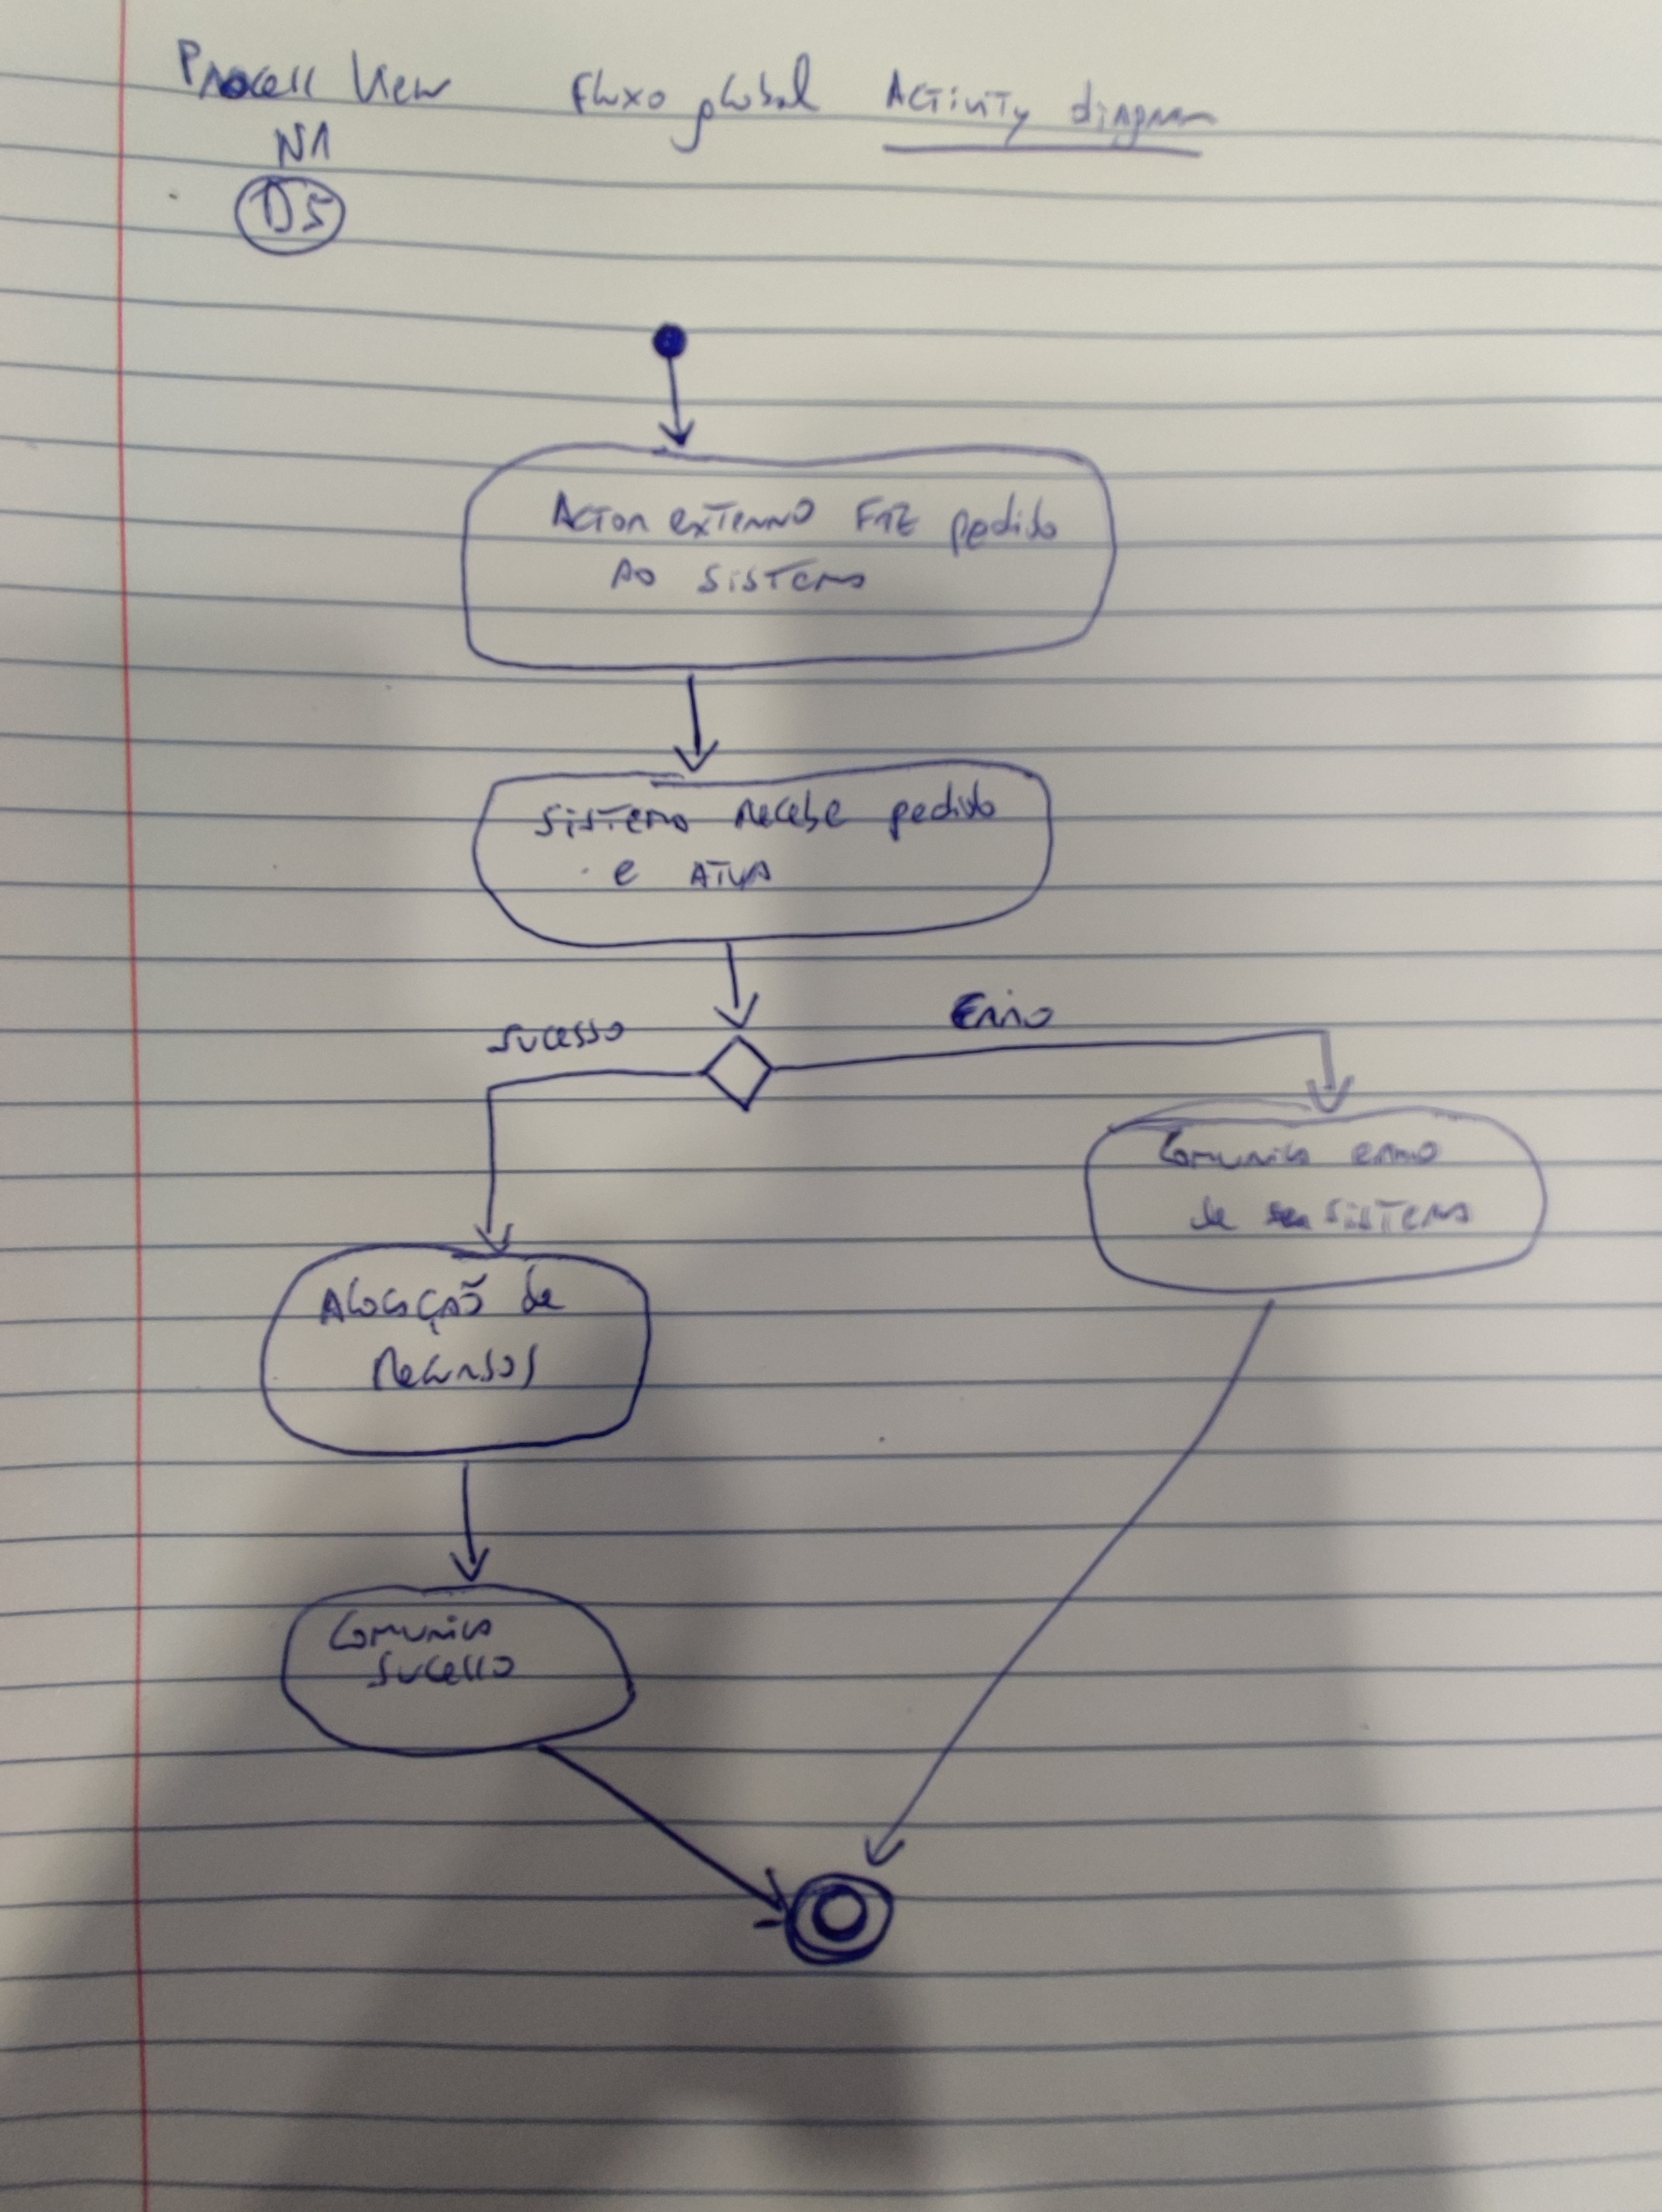 Process View Fluxo global Activity diagram
N1
D5
Actor externo faz pedido
ao sistema
Sistema recebe pedido
e atua
Sucesso
Erro
Comunica erro
de sistema
Alocação de
recursos
Comunica
sucesso